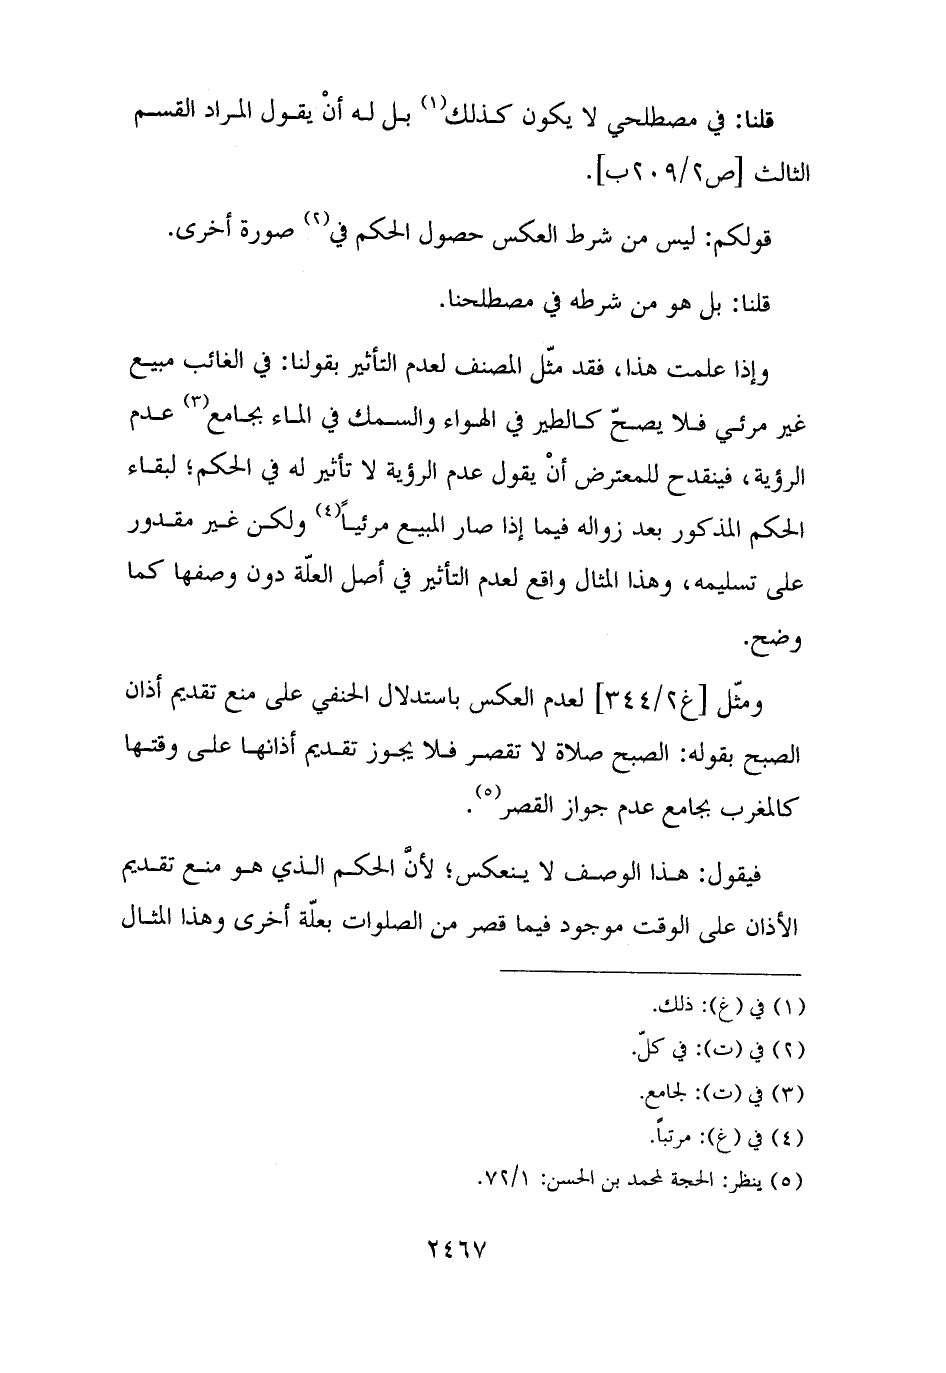 قلنا: في مصطلحي لا يكون كذلك(١) بل له أنْ يقول المراد القسم
الثالث [ص٢٠٩/٢ب].
قولكم: ليس من شرط العكس حصول الحكم في(٢) صورة أخرى.
قلنا: بل هو من شرطه في مصطلحنا.
وإذا علمت هذا، فقد مثّل المصنف لعدم التأثير بقولنا: في الغائب مبيع
غير مرئي فلا يصحّ كالطير في الهواء والسمك في الماء بجامع(٣) عدم
الرؤية، فينقدح للمعترض أنْ يقول عدم الرؤية لا تأثير له في الحكم؛ لبقاء
الحكم المذكور بعد زواله فيما إذا صار المبيع مرئياً(٤) ولكن غير مقدور
على تسليمه، وهذا المثال واقع لعدم التأثير في أصل العلّة دون وصفها كما
وضح.
ومثّل [غ٣٤٤/٢] لعدم العكس باستدلال الحنفي على منع تقديم أذان
الصبح بقوله: الصبح صلاة لا تقصر فلا يجوز تقديم أذانها على وقتها
كالمغرب بجامع عدم جواز القصر(٥).
فيقول: هذا الوصف لا ينعكس؛ لأنَّ الحكم الذي هو منع تقديم
الأذان على الوقت موجود فيما قصر من الصلوات بعلّة أخرى وهذا المثال
(١) في (غ): ذلك.
(٢) في (ت): في كلّ.
(٣) في (ت): لجامع.
(٤) في (غ): مرتباً.
(٥) ينظر: الحجة لمحمد بن الحسن: ٧٢/١.
٢٤٦٧